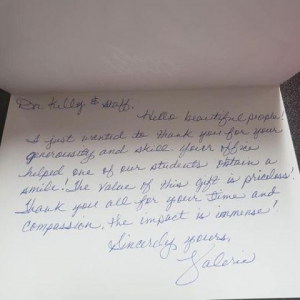 Dr. Kelly & staff,
Hello beautiful people!
I just wanted to thank you for your
generousity and skill your office
helped one of our students obtain a
smile! The value of this gift is priceless!
Thank you all for your time and
compassion, the impact is immense!
Sincerely yours,
Valerie